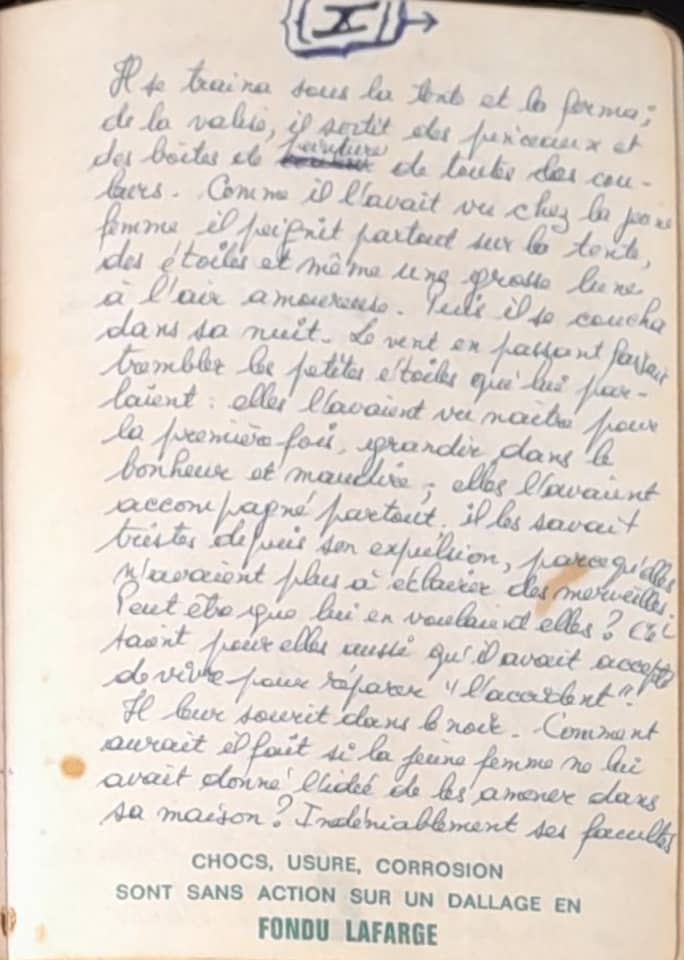 X
Il se traina sous la tente et la ferma ;
de la valise, il sortit des pinceaux et
des boîtes de peinture de toutes les cou-
leurs. Comme il l'avait vu chez la jeune
femme il peignit partout sur la tente,
des étoiles et même une grosse lune
à l'air amoureuse. Puis il se coucha
dans sa nuit. Le vent en passant faisait
trembler les petites étoiles qui lui par-
laient : elles l'avaient vu naître pour
la première fois, grandir dans le
bonheur et maudire ; elles l'avaient
accompagné partout, il les savait
tristes depuis son expulsion, parcequ'elles
n'avaient plus à éclairer des merveilles.
Peut être que lui en voulaient elles ? C'é
taient pour elles aussi qu'il avait accepté
de vivre pour réparer "l'accident".
Il leur sourit dans le noir. Comment
aurait il fait si la jeune femme ne lui
avait donné l'idée de les amener dans
sa maison ? Indéniablement ses facultés
CHOCS, USURE, CORROSION
SONT SANS ACTION SUR UN DALLAGE EN
FONDU LAFARGE